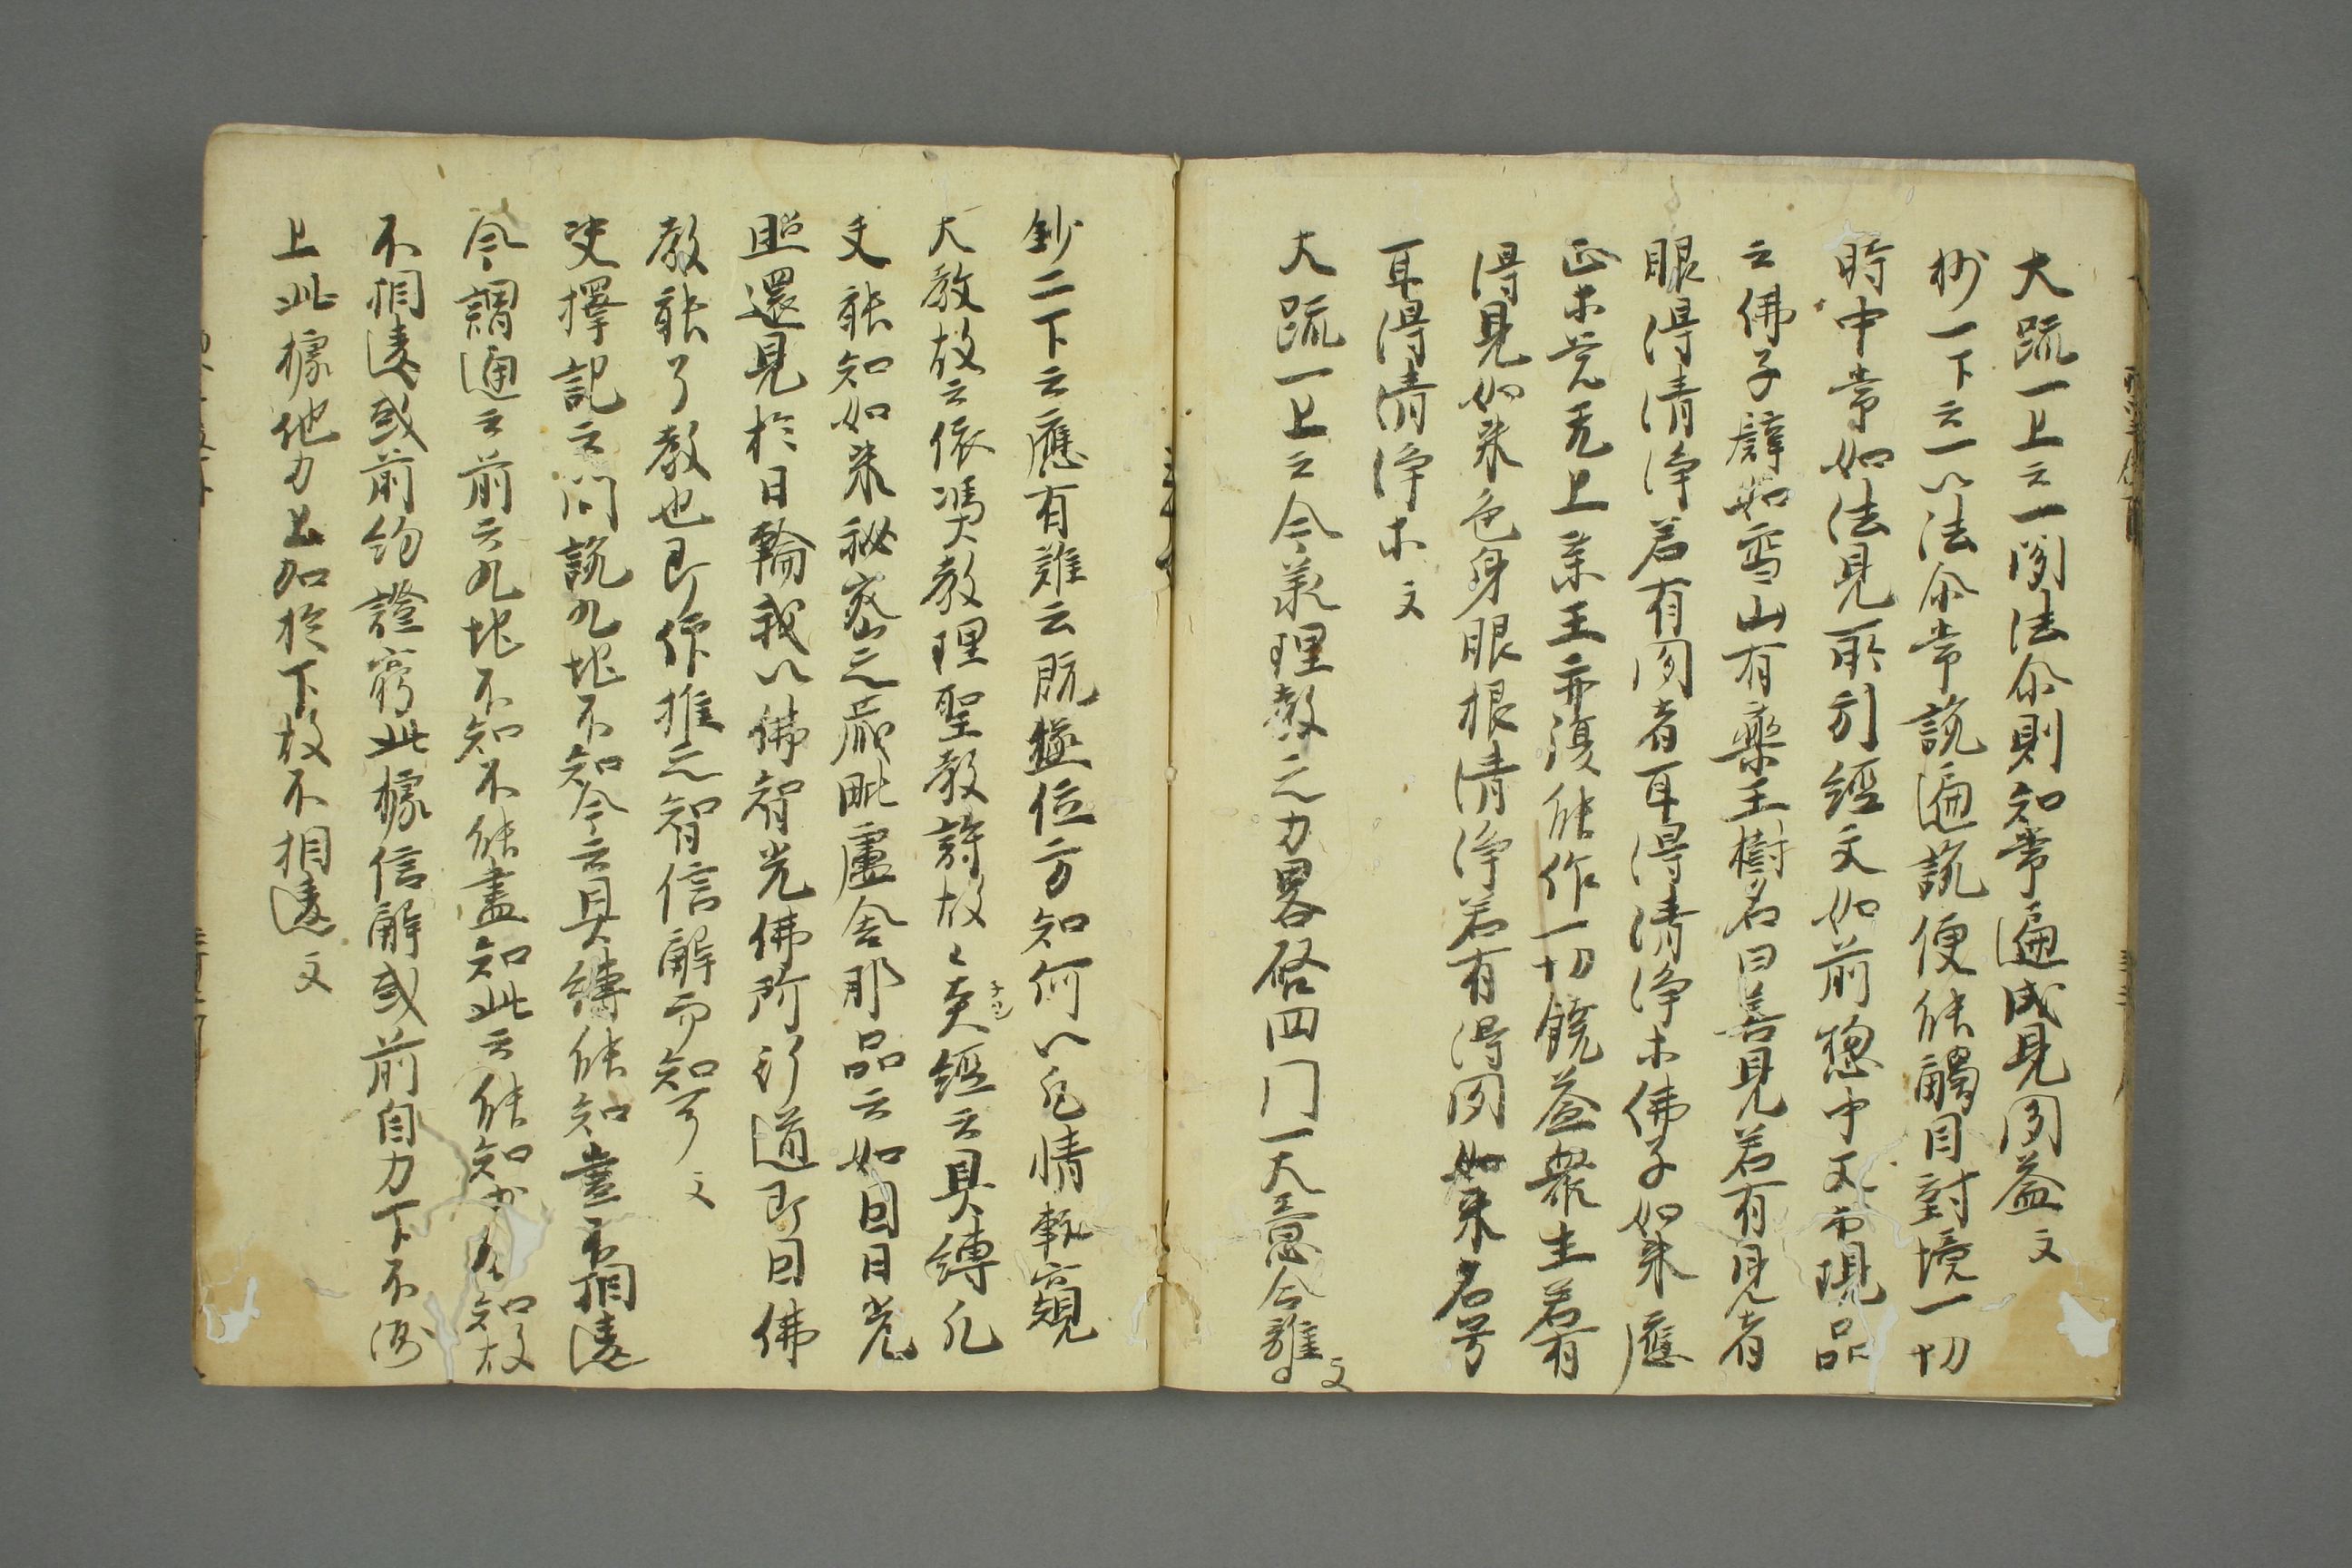 大疏一上云一聞法尒則知常遍成見聞益文
抄一下云一以法尒常說遍說便能觸目對境一切
時中常如法見所引經文如前惣中又出現品
云佛子譬如雪山有藥王樹名曰善見若有見者
眼得清淨若有聞者耳得清淨木佛子如来應
正木覚无上藥王亦復能作一切饒益衆生若有
得見如来色身眼根清淨若有得聞如来名号
耳得清淨木文
大疏一上云今義理教之力畧啓四门一大意合離文
鈔二下云應有難云既極位方知何以凡情輙窺
大教故云依憑教理聖教許故々英經云具縛凡
夫能知如来秘密之蔵毗盧舍那品云如因日光
照還見於日輪我以佛智光佛所行道即因佛
教能了教也即作推之智信解而知了文
決擇記云問說九地不知今云具縛能知豈不相違
今謂通云前云九地不知不能盡知此云能知少分知故
不相違或前約證窮此據信解或前自力下不測
上此據他力上加於下故不相違文